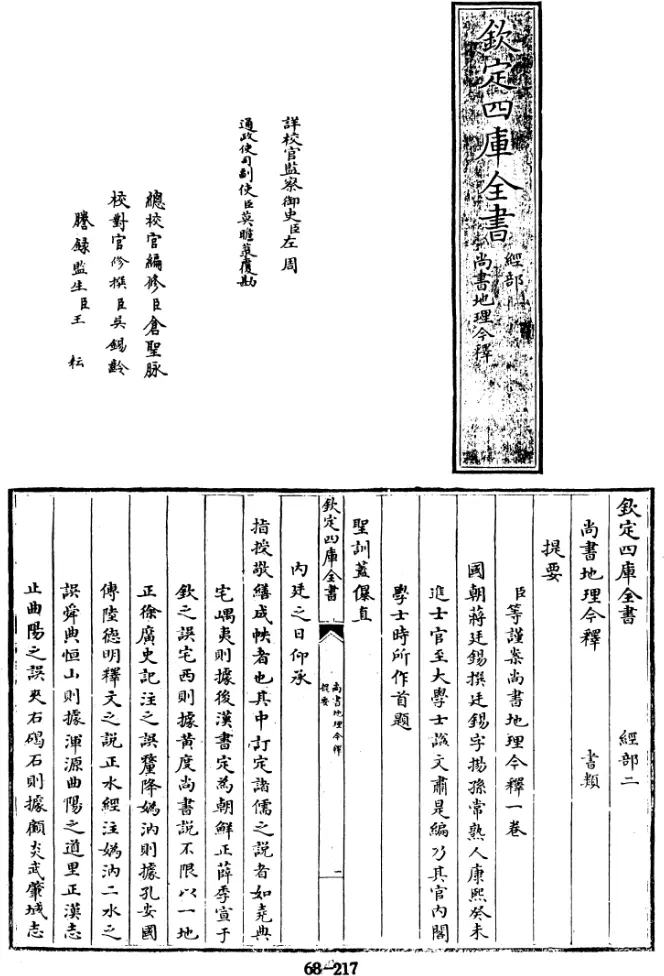 欽定四庫全書
經部
尚書地理今釋
詳校官監察御史臣左周
通政使司副使臣莫瞻菉覆勘
總校官編修臣倉聖脉
校對官修撰臣吳錫齡
謄錄監生臣王耘
欽定四庫全書 經部二
尚書地理今釋 書類
提要
臣等謹案尚書地理今釋一卷
國朝蔣廷錫撰廷錫字揚孫常熟人康熙癸未
進士官至大學士諡文肅是編乃其官內閣
學士時所作首題
聖訓葢儤直
欽定四庫全書
尚書地理今釋
提要
一
內廷之日仰承
指授敬繕成帙者也其中訂定諸儒之說者如堯典
宅嵎夷則據後漢書定為朝鮮正薛季宣于
欽之誤宅西則據黃度尚書說不限以一地
正徐廣史記注之誤釐降嬀汭則據孔安國
傳陸德明釋文之說正水經注嬀汭二水之
誤舜典恒山則據渾源曲陽之道里正漢志
止曲陽之誤夾右碣石則據顧炎武肇域志
68-217